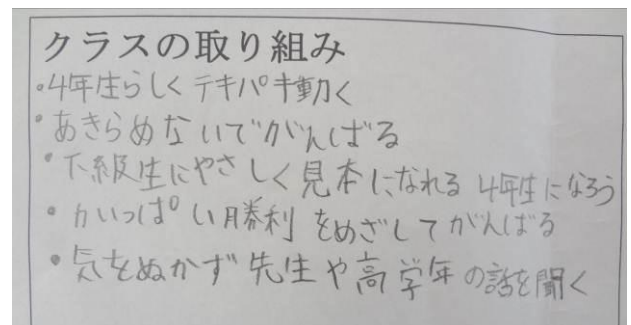 クラスの取り組み
・4年生らしくテキパキ動く
・あきらめないでがんばる
・下級生にやさしく見本になれる 4年生になろう
・力いっぱい勝利をめざしてがんばる
・気をぬかず先生や高学年の話を聞く